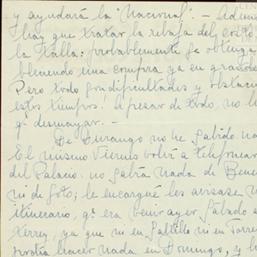 y ayudará la "Nacional". -
hay que tratar la rebaja del costo
la talla: probablemente se obtenga
una compra ya en grande
Pero todo son dificultades y
estos tiempos. A pesar de todo, no
q' desmayar. -
De Durango no he sabido
El mismo Viernes volví a telefonear
del Palacio. no sabía nada de
ni de Soto; le encargué les avisase
itinerario, q' era ayer Sábado a
ya que ni en Saltillo ni en Torre
hacer nada en Domingo, y